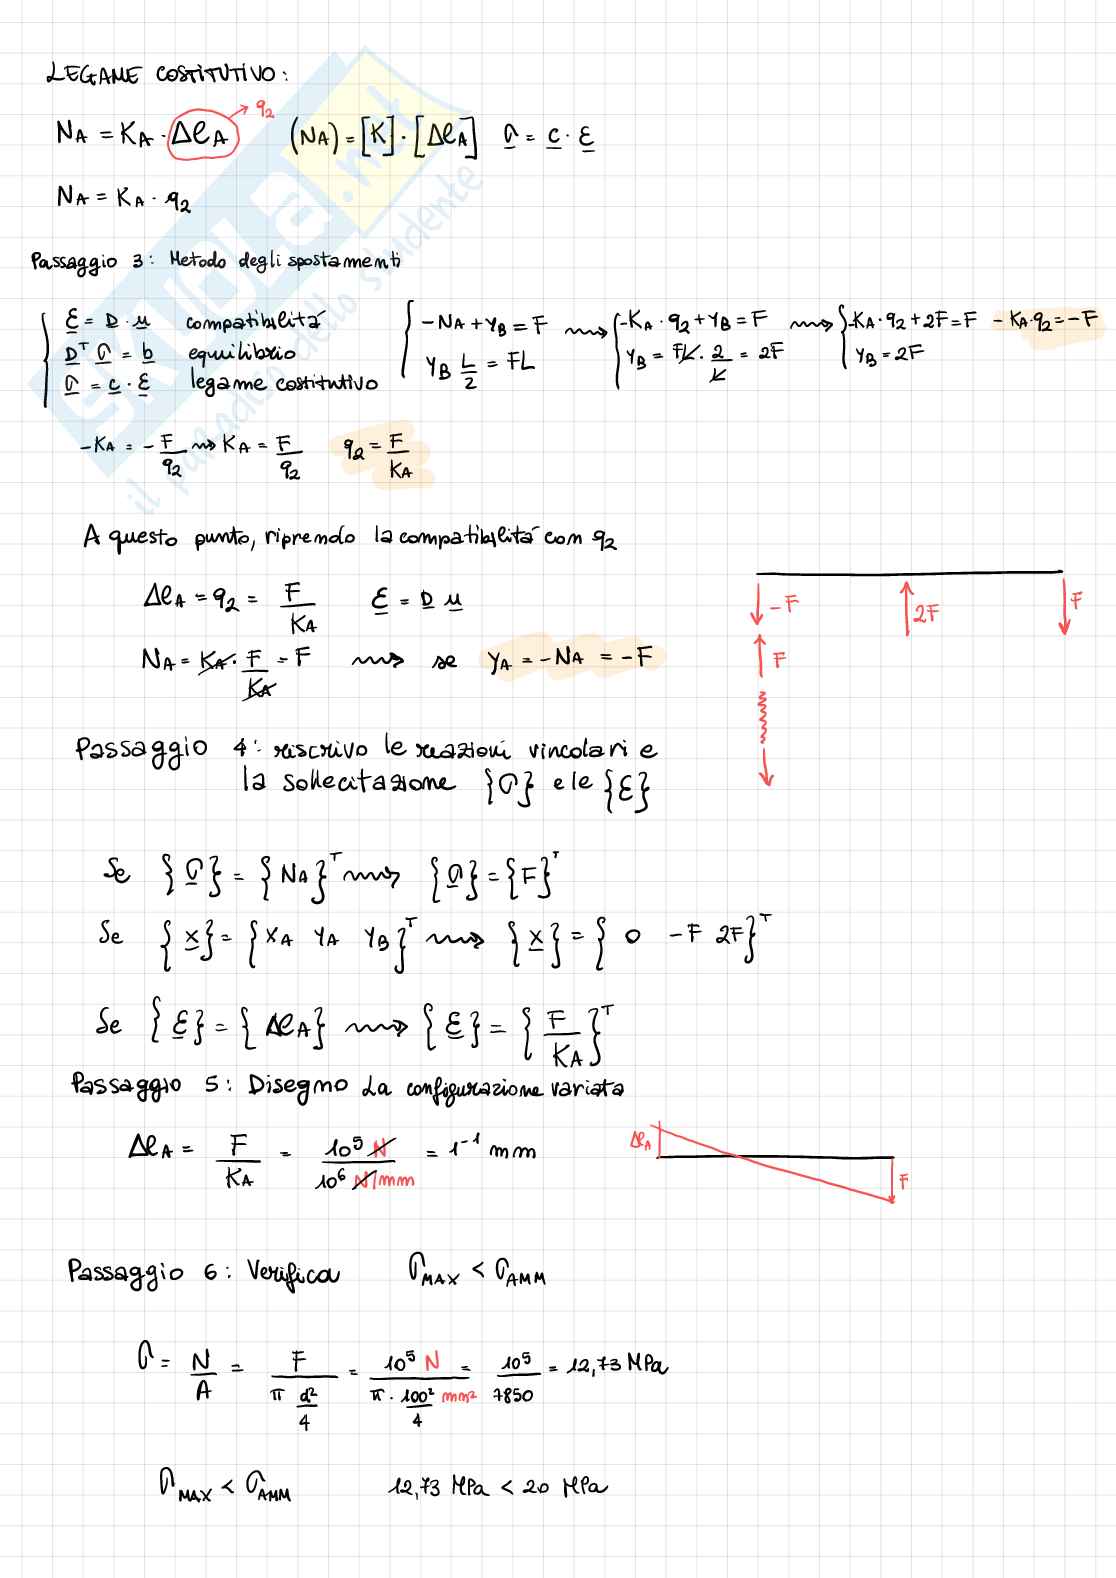 LEGAME COSTITUTIVO:
q2
NA = KA · ΔlA (NA) = [K] · [ΔlA] σ = c · ε
NA = KA · q2
Passaggio 3: Metodo degli spostamenti
ε = D · u compatibilità
DT σ = b equilibrio
σ = c · ε legame costitutivo
-NA + YB = F ⟿ -KA · q2 + YB = F ⟿ -KA · q2 + 2F = F - KA · q2 = -F
YB L/2 = FL YB = FL · 2/L = 2F YB = 2F
-KA = - F/q2 ⟿ KA = F/q2 q2 = F/KA
A questo punto, riprendo la compatibilità con q2
ΔlA = q2 = F/KA ε = D u
NA = KA · F/KA = F ⟿ se YA = -NA = -F
-F 2F F
F
Passaggio 4: riscrivo le reazioni vincolari e
la sollecitazione {σ} e le {ε}
Se {σ} = {NA}T ⟿ {σ} = {F}T
Se {x} = {XA YA YB}T ⟿ {x} = {0 -F 2F}T
Se {ε} = {ΔlA} ⟿ {ε} = {F/KA}T
Passaggio 5: Disegno La configurazione variata
ΔlA = F/KA = 10^5 N / 10^6 N/mm = 1^-1 mm
ΔlA F
Passaggio 6: Verifica σMAX < σAMM
σ = N/A = F / (π d²/4) = 10^5 N / (π · 100²/4 mm²) = 10^5/7850 = 12,73 MPa
σMAX < σAMM 12,73 MPa < 20 MPa
SKUOLA.net
il paradiso dello studente